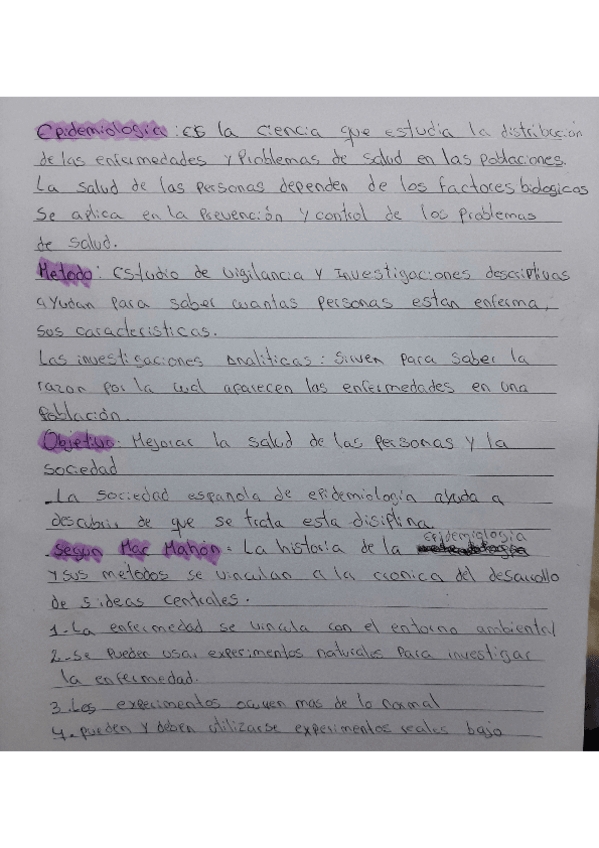 Epidemiologia: es la ciencia que estudia la distribución
de las enfermedades y Problemas de salud en las Poblaciones.
La salud de las personas dependen de los factores biologicos
Se aplica en la Prevención y control de los problemas
de salud.
Metodo: Estudio de vigilancia y Investigaciones descriptivas
ayudan para saber cuantas personas estan enferma,
sus caracteristicas.
Las investigaciones Analiticas: Sirven para saber la
razon por la cual aparecen las enfermedades en una
población.
Objetivo: Mejorar la salud de las personas y la
sociedad
_La sociedad española de epidemiologia ayuda a
descubrir de que se trata esta disiplina.
epidemiologia
.Segun Mac Mahón: La historia de la
y sus metodos se vinculan a la cronica del desarollo
de 5 ideas centrales.
1.-La enfermedad se vincula con el entorno ambiental
2.-Se pueden usar experimentos naturales para investigar
la enfermedad.
3.Los experimentos ocurren mas de lo normal
4.-pueden y deben utilizarse experimentos reales bajo